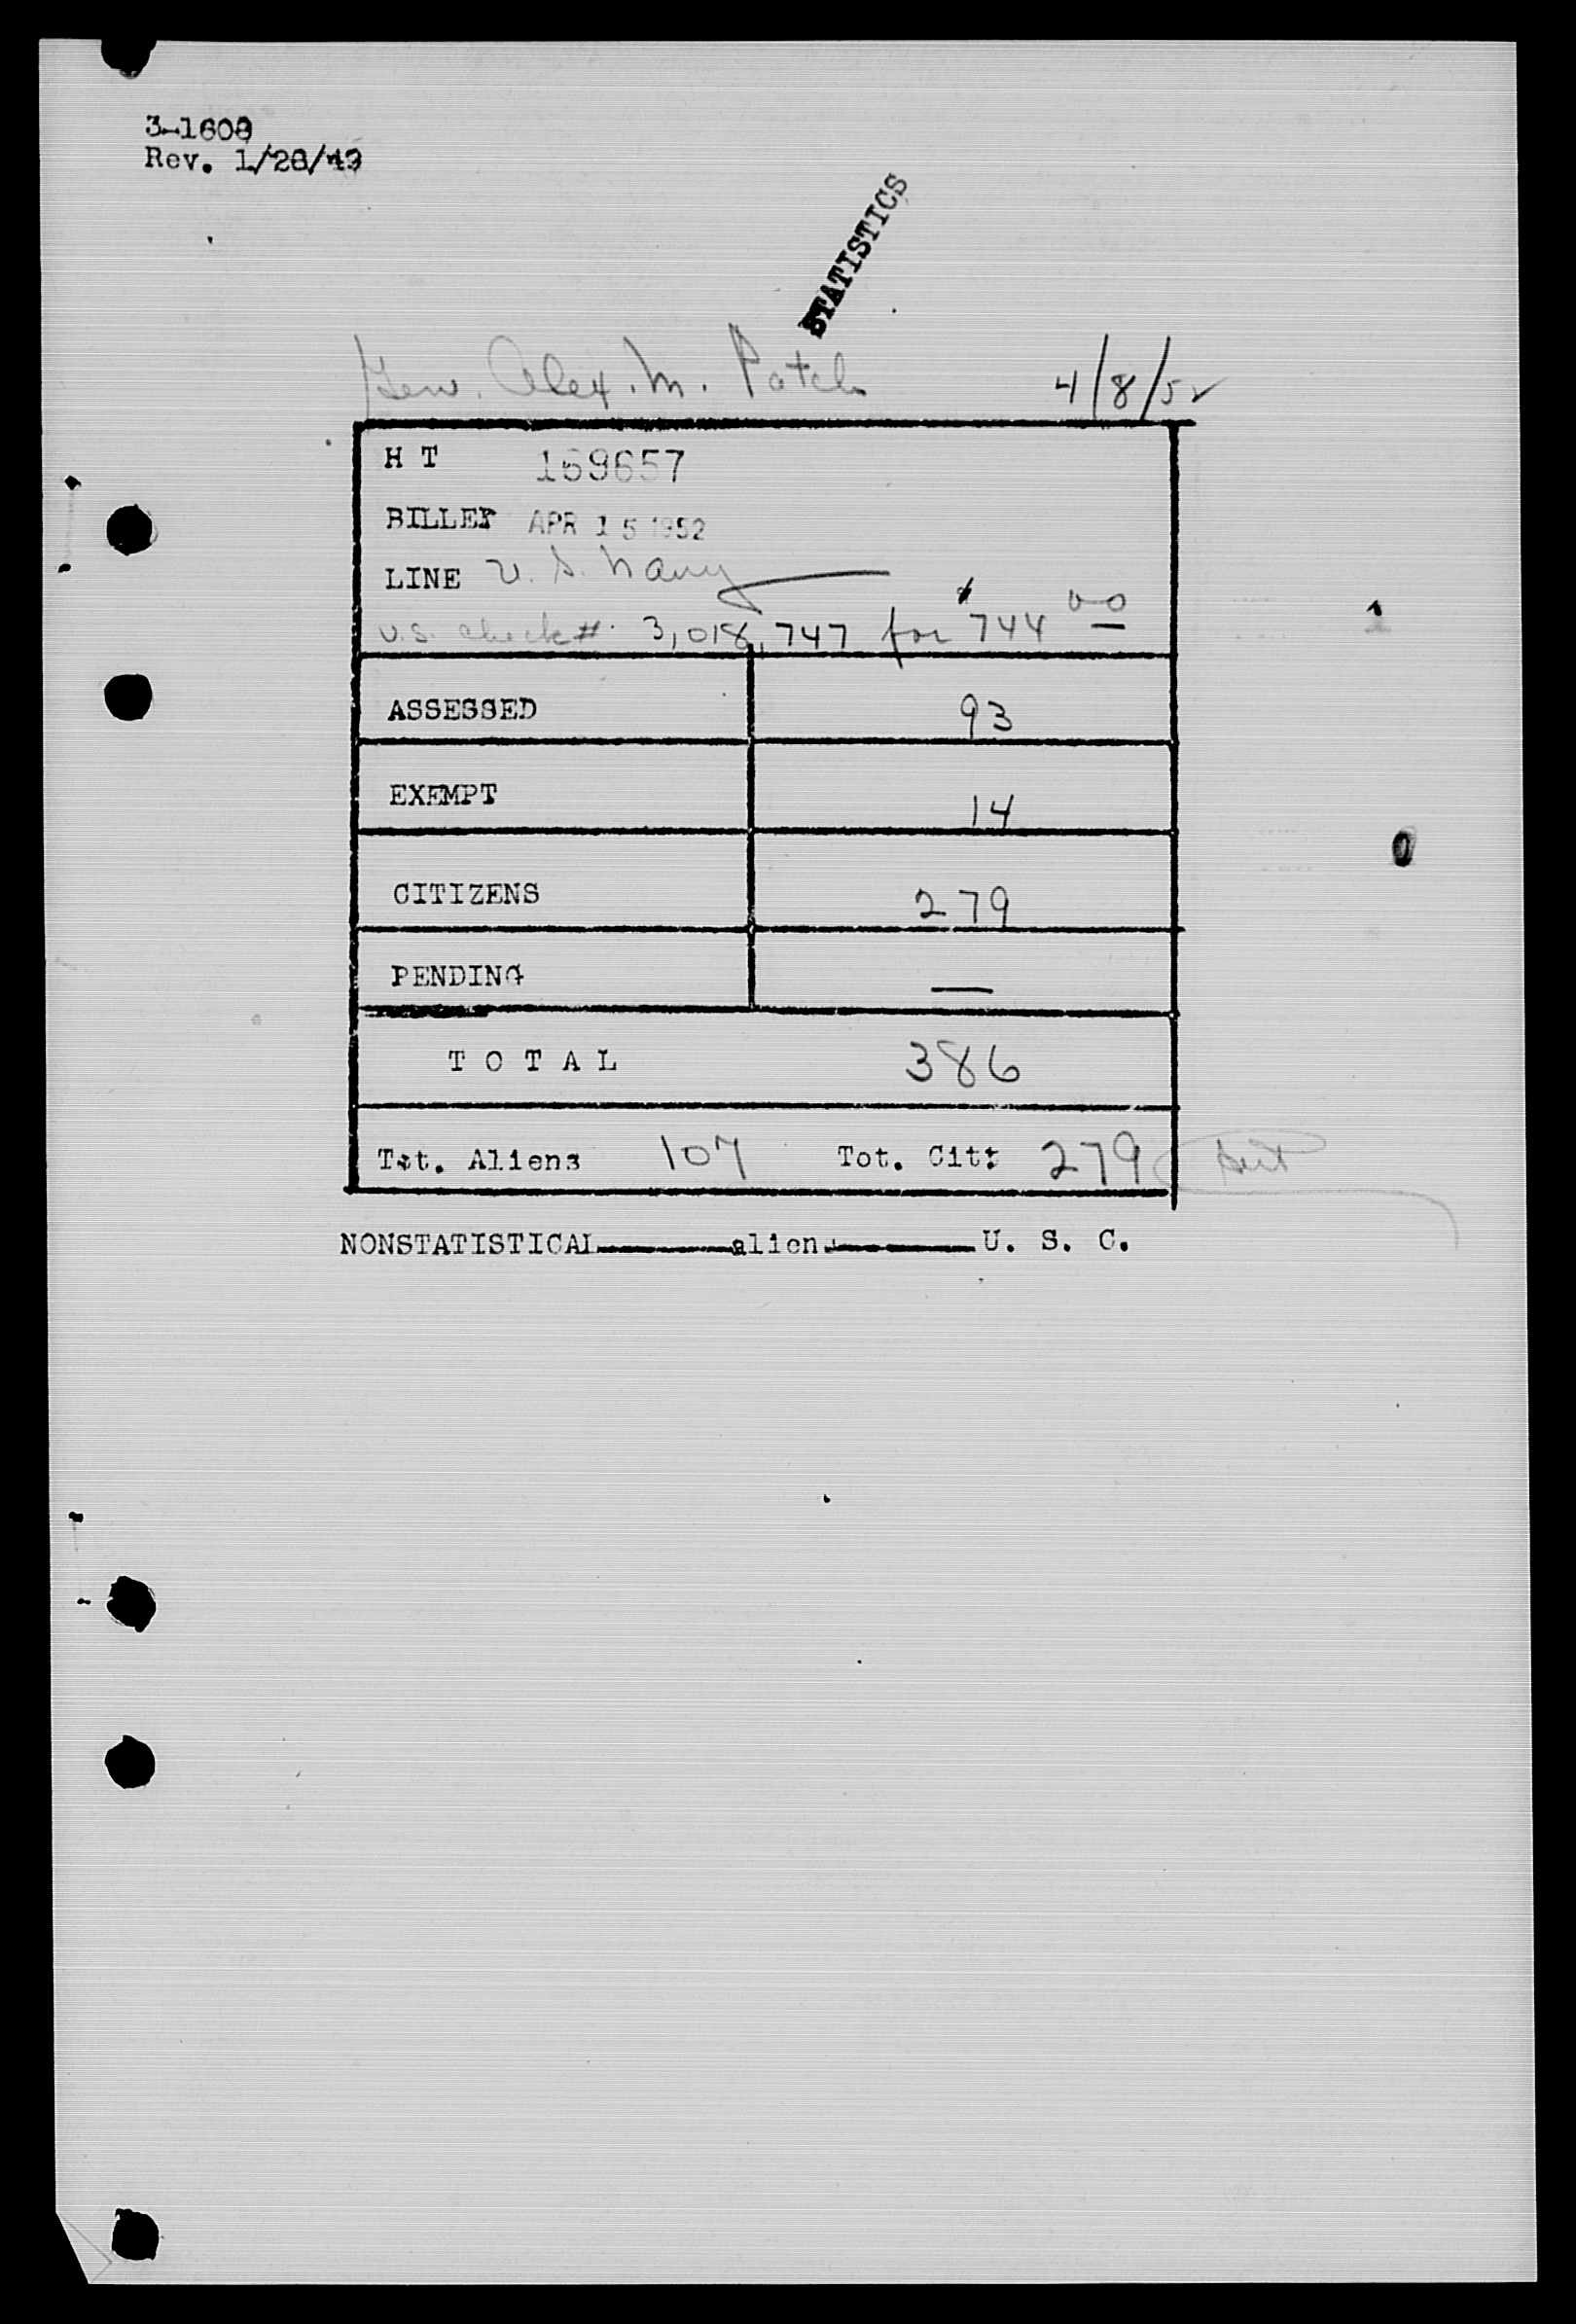 3-1608
Rev. 1/28/49
STATISTICS
Gen. Alex. M. Patch 4/8/52
H T 159657
BILLET APR 15 1952
LINE U. S. Navy
U.S. check # 3,018,747 for $744 00
ASSESSED 93
EXEMPT 14
CITIZENS 279
PENDING —
T O T A L 386
Tot. Aliens 107 Tot. Cit: 279
NONSTATISTICAL alien U. S. C.